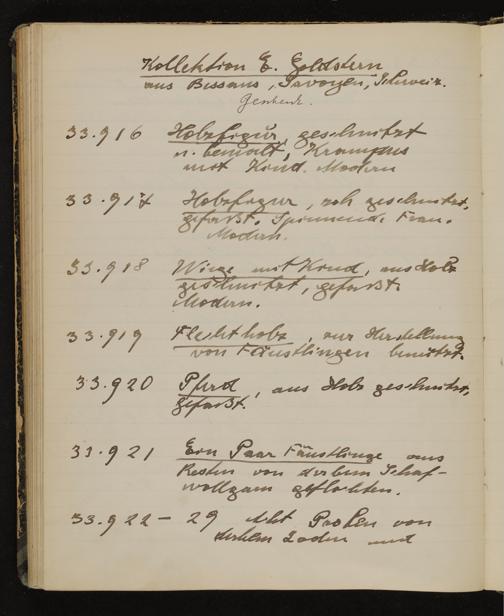 Kollektion E. Goldstern
aus Bessans, Savoyen, Schweiz.
Geschenk.
33.916 Holzfigur, geschnitzt
u. bemalt, Krampus
mit Kind. Modern
33.917 Holzfigur, roh geschnitzt,
gefasst. Spinnende Frau.
Modern.
33.918 Wiege mit Kind, aus Holz
geschnitzt, gefasst.
Modern.
33.919 Flechtholz, zur Herstellung
von Fäustlingen benützt.
33.920 Pferd, aus Holz geschnitzt,
gefasst.
33.921 Ein Paar Fäustlinge aus
Resten von derbem Schaf-
wollgarn geflochten.
33.922 - 29 Acht Proben von
derbem Loden und